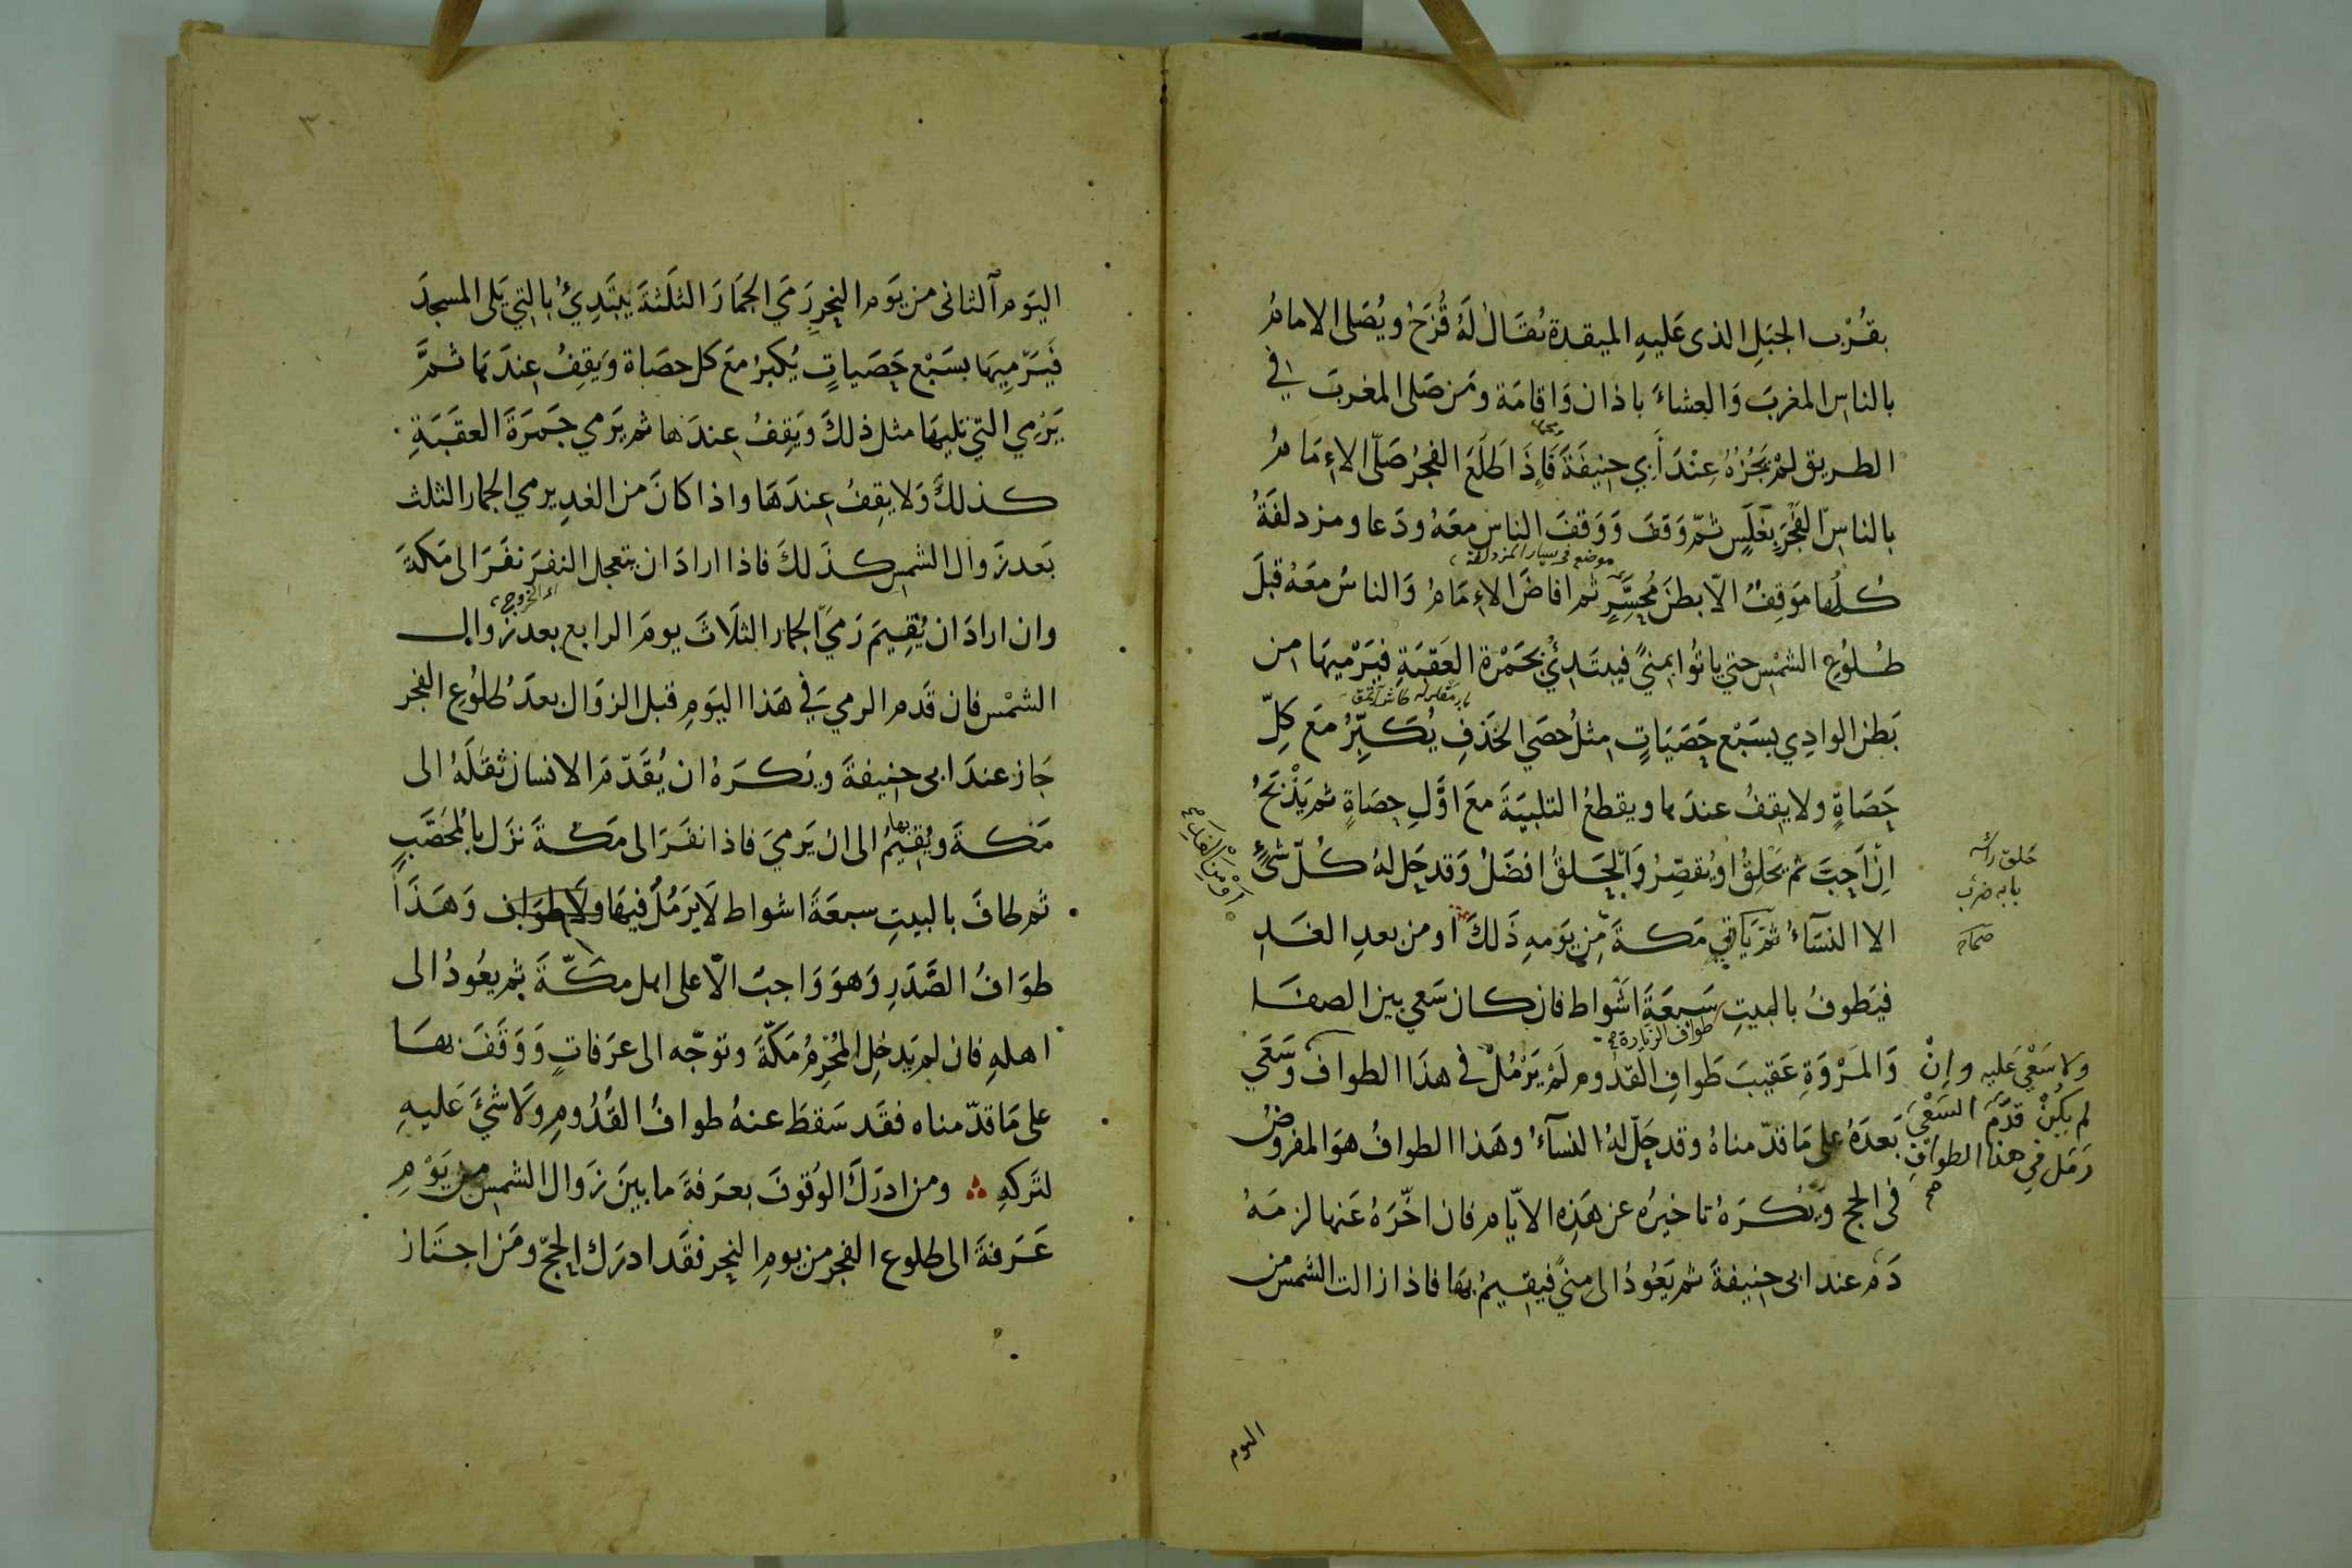 بقُرْب الجبَلِ الذى عَليهِ الميقدة يُقَالُ لَهُ قُزَحُ ويُصَلى الامامُ
بالناسِ المغربَ وَالعِشاءَ باذان وَاقامَة ومَن صَلى المغربَ في
الطريق لمْ يَجُزْهُ عِنْدَ أَبِي حنِيفَةَ فَإِذَا طَلَعَ الفجرُ صَلّى الاِمَامُ
بالناسِ الفَجْرَ بغَلَسٍ ثمّ وَقفَ وَوَقفَ الناس معَهُ ودَعا ومزدلفَةُ
موضع فى يسار المزدلفة
كلُّها مَوَقِفٌ الّا بطنَ مُحَسِّرٍ ثم افاضَ الاِمَامُ وَالناسُ معَهُ قبلَ
طُلوُعِ الشمْسِ حتي ياتُوا مِنيً فيبتَدِئُ بجَمْرة العَقبَةِ فيَرْميهَا من
بَطن الوادِي بسَبْع حَصَيَاتٍ مثلُ حصَي الخَذفِ يُكَبِّرُ معَ كلِّ
حَصَاةٍ ولا يقِفُ عندَها ويقطعُ التلبيَةَ معَ اوَّلِ حصَاةٍ ثم يَذْبَحُ
اِنْ اَحَبَّ ثم يَحْلِقُ او يُقصِّرُ وَالحَلقُ افضَلُ وَقد حَل لهُ كُلّ شئٍ
حَلق راسَه
بابه ضرب
اَوْ مِنَ الغَدِ صح
الا النسَآءُ ثمّ يَاتي مَكةَ مِن يَومِهِ ذَلكَ او من بعدِ الغَدِ
فيَطوفُ بالبيتِ سَبعَةَ اشوَاط فان كان سَعي بين الصفَا
طواف الزيارة
وَالمَرْوَةِ عَقيبَ طَوافِ القدُوم لَمْ يَرْمُلْ في هذَا الطواف وَسَعَي
ولا سَعْيَ عَليه وانْ
لم يكُنْ قدَّمَ السَعْيَ
رَمَل في هذا الطوافِ
صح
بَعدَهُ على مَا قدّمناهُ وقد حَلّ لهُ النسآءُ وهَذا الطوافُ هوَ المفروضُ
فى الحج ويُكرَهُ تاخيرُه عن هَذِه الايّام فان اخّرَهُ عَنها لزمَهُ
دَم عند ابى حنِيفةَ ثم يَعُودُ الى مِنيً فيقيمُ بهَا فاذا زالت الشمس من
اليوم
٣٠
اليَوم الثانى من يَوم النحِر رَمَي الجمَارَ الثلَثةَ يبتَدِئُ بالتِي تلى المسجدَ
فَيَرْمِيهَا بسَبْع حَصَياتٍ يُكبرُ معَ كل حصَاة وَيَقِفُ عندَها ثمَّ
يَرْمِي التي تليهَا مثل ذلكَ وَيَقِفُ عِندَها ثم يَرْمي جَمرَةَ العقَبَةِ
كذلكَ وَلا يقِفُ عِندَهَا واذا كانَ من الغدِ يرمي الجمار الثلث
بَعد زَوال الشمس كذَلكَ فاذا ارادَ ان يتعجل النفرَ نفَرَ الى مَكةَ
اى الخروج
وان ارادَ ان يُقِيمَ رَمَيَ الجمار الثلَاثَ يومَ الرابع بعد زَوال
الشمْس فان قَدم الرميَ في هَذا اليَومِ قبل الزوَال بعدَ طلوُعِ الفجر
جَاز عندَ ابى حنِيفةَ ويُكرَهُ ان يُقَدّمَ الانسان ثقَلَهُ الى
مَكةَ ويُقيمُ بها الى ان يَرميَ فاذا نفَرَ الى مَكةَ نزَل بالمُحَصَّبِ
ثم طافَ بالبيتِ سبعَةَ اشواط لَا يَرمُلُ فيهَا ولَا طوَاف وَهَذَا
طوَافُ الصَّدَرِ وَهوَ وَاجبٌ الّا على اهل مكّةَ ثم يعُودُ الى
اهلهِ فان لم يَدخِل المُحْرِمُ مَكّةَ وتوجّه الى عرَفاتٍ وَوَقَفَ بهَا
على مَا قدّمناه فقَد سَقطَ عنهُ طوافُ القُدُومِ وَلَا شئَ عَليهِ
لتَركهِ ∴ ومن ادرَكَ الوُقوفَ بعرَفةَ ما بينَ زَوال الشمس من يَوْمِ
عَرَفةَ الى طلوع الفجر من يومِ النحِر فقَد ادرَك الحجّ ومَن اجتَاز